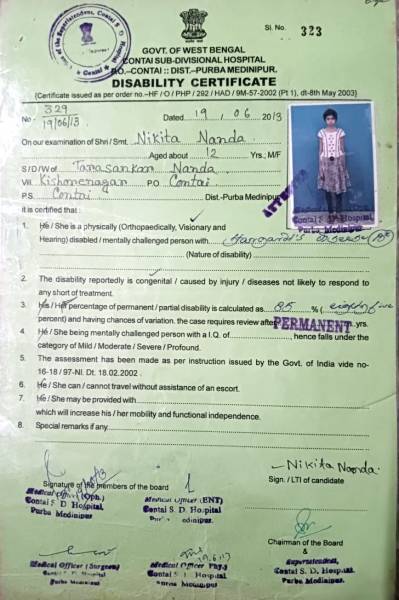 Sl. No. 323
GOVT. OF WEST BENGAL
CONTAI SUB-DIVISIONAL HOSPITAL
P.O.-CONTAI :: DIST.-PURBA MEDINIPUR.
DISABILITY CERTIFICATE
(Certificate issued as per order no.-HF / O / PHP / 292 / HAD / 9M-57-2002 (Pt 1), dt-8th May 2003)
329
No - 19/06/13 Dated 19 / 06 / 2013
On our examination of Shri / Smt. Nikita Nanda
Aged about 12 Yrs., M/F
S/D/W of Tarasankar Nanda
Vill Kishorenagar P.O Contai
P.S Contai Dist.-Purba Medinipur
ATTESTED
Contai S. D. Hospital
Purba Medinipur
it is certified that :
1. He / She is a physically (Orthopaedically, Visionary and
Hearing) disabled / mentally challenged person with
(Nature of disability)
2. The disability reportedly is congenital / caused by injury / diseases not likely to respond to
any short of treatment.
3. His / Her percentage of permanent / partial disability is calculated as 85 % ( eighty five
percent) and having chances of variation. the case requires review after PERMANENT yrs.
4. He / She being mentally challenged person with a I.Q. of , hence falls under the
category of Mild / Moderate / Severe / Profound.
5. The assessment has been made as per instruction issued by the Govt. of India vide no-
16-18 / 97-NI. Dt. 18.02.2002 .
6. He / She can / cannot travel without assistance of an escort.
7. He / She may be provided with
which will increase his / her mobility and functional independence.
8. Special remarks if any
Nikita Nanda.
Signature of the members of the board Sign. / LTI of candidate
Medical Officer (Oph.) Medical Officer (ENT)
Contai S. D. Hospital, Contai S. D. Hospital
Purba Medinipur Purba Medinipur.
Chairman of the Board
&
Superintendent,
Medical Officer (Surgeon) Medical Officer Phy.) Contai S. D. Hospital
Contai S. D. Hospital Contai S. D. Hospital Purba Medinipur.
Purba Medinipur Purba Medinipur